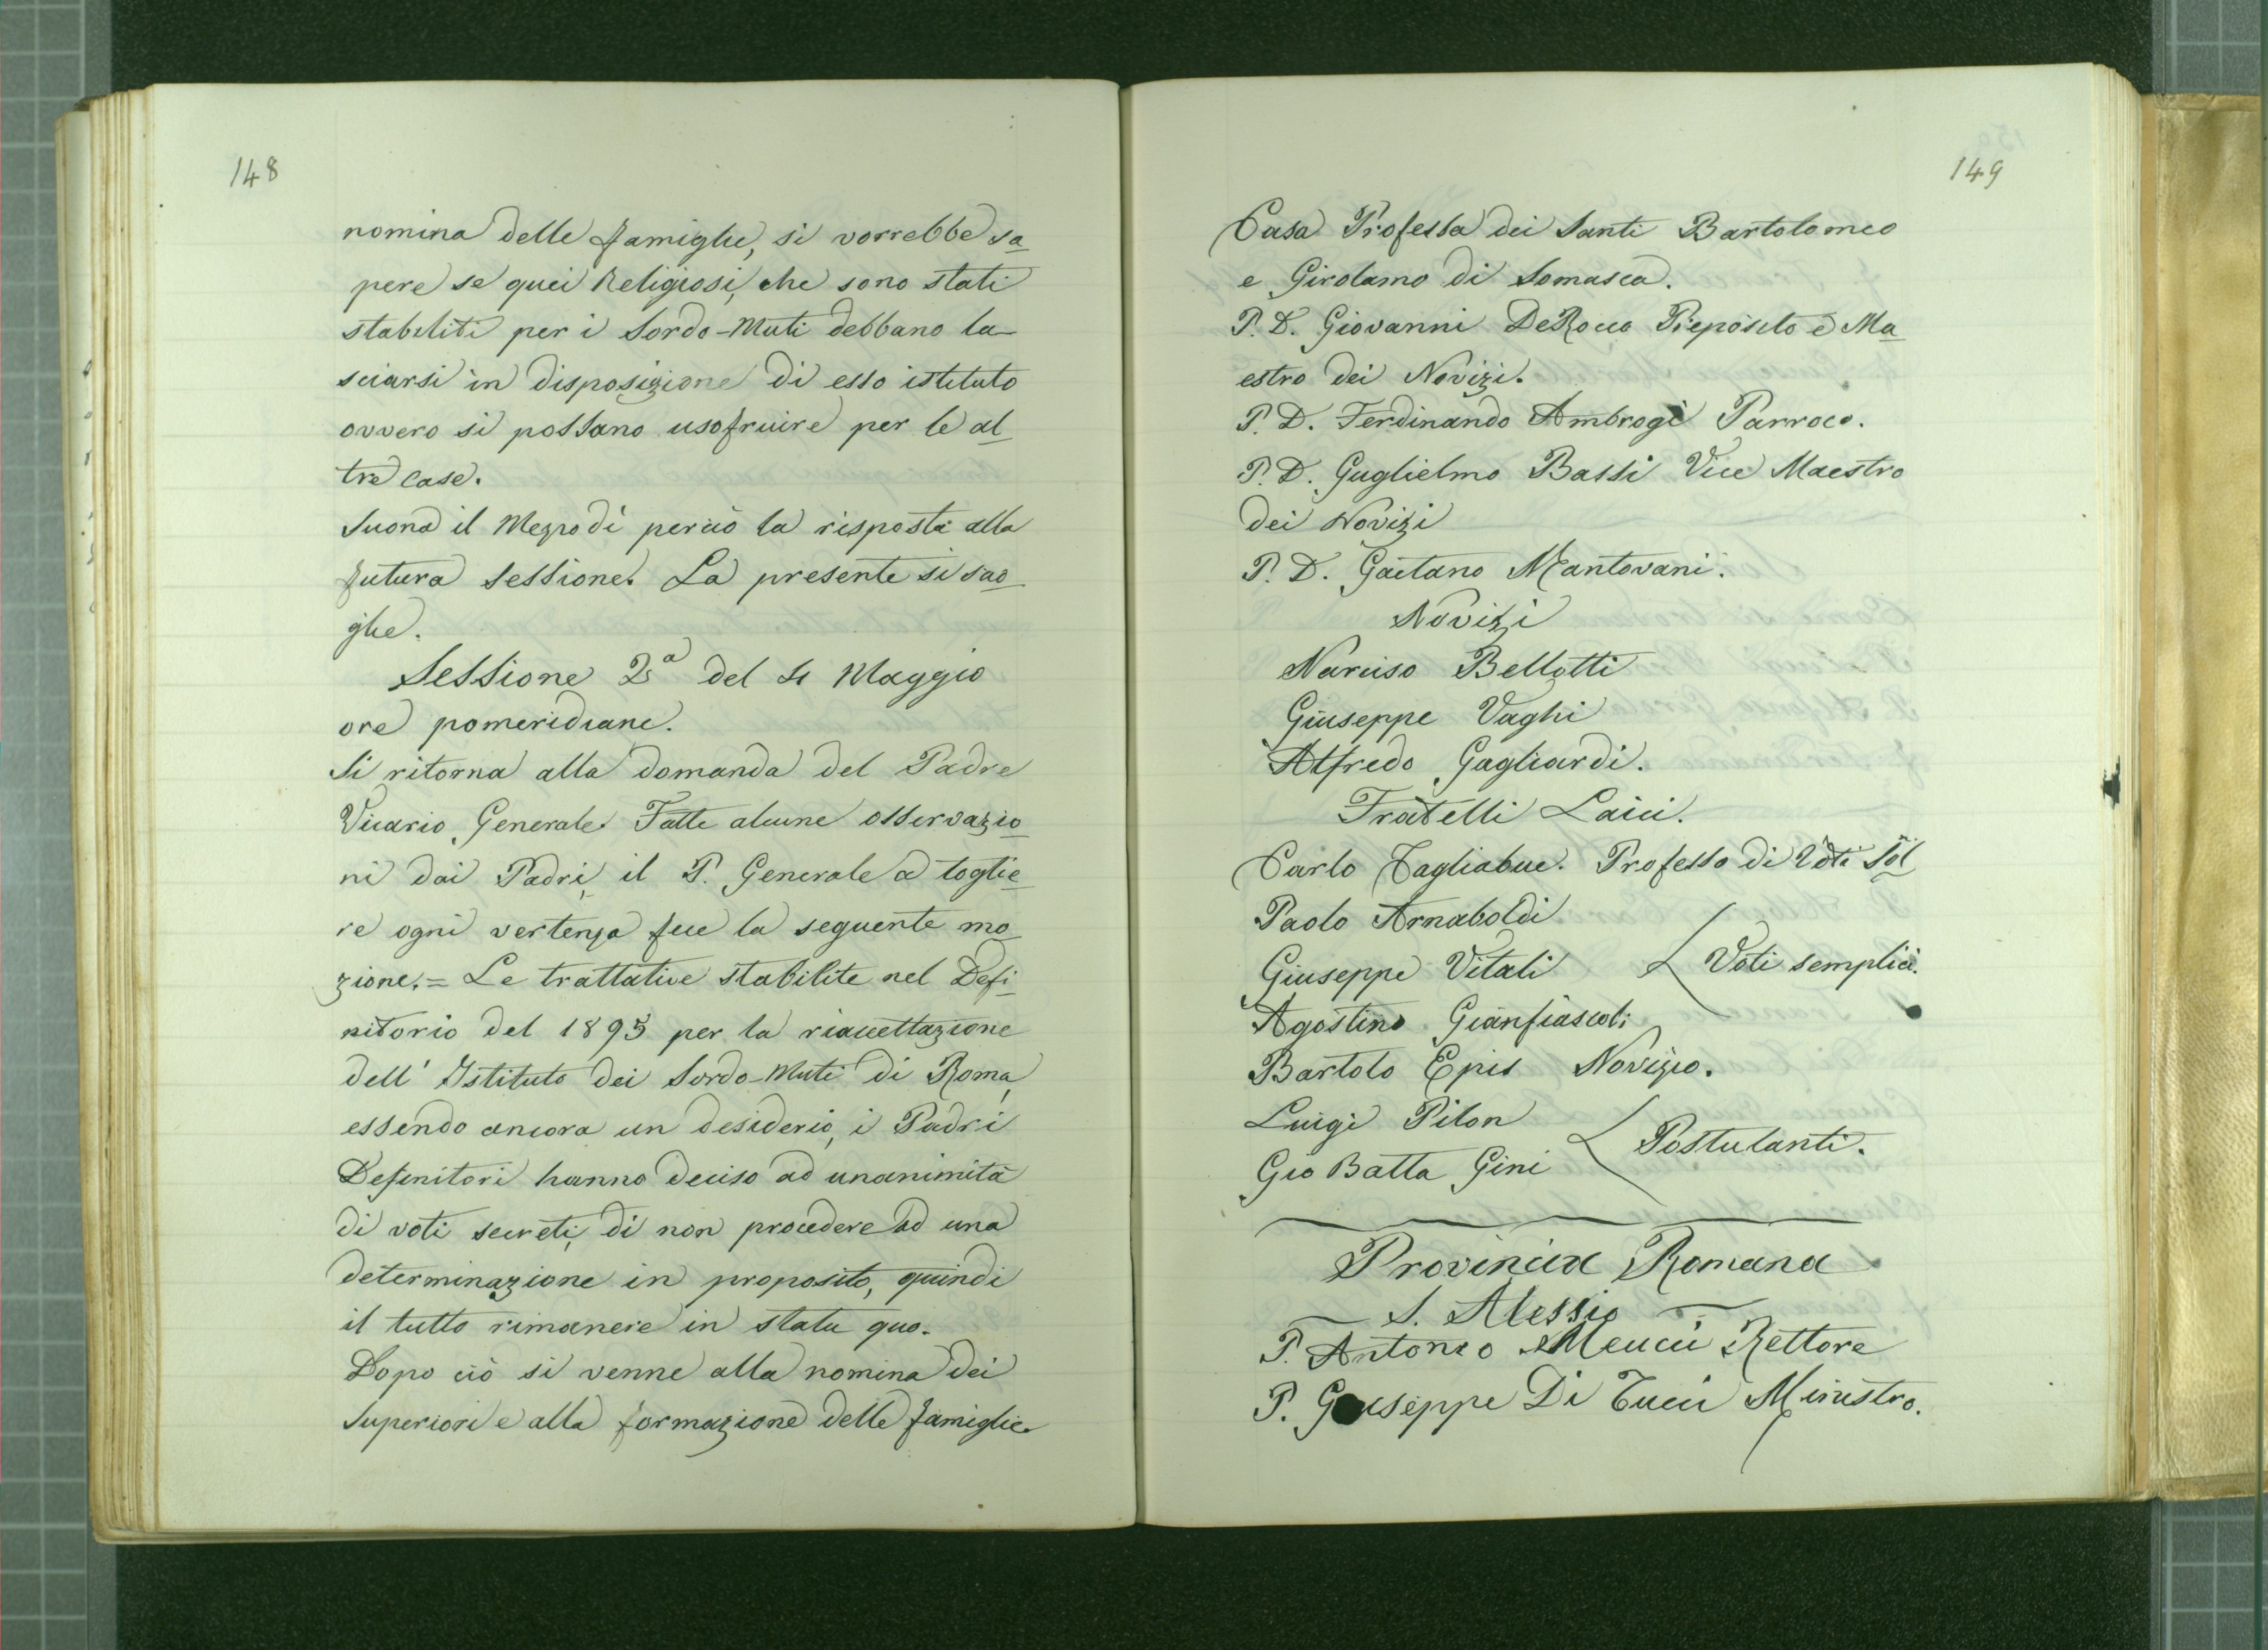 148
nomina delle famiglie, si vorrebbe sa
pere se quei Religiosi, che sono stati
stabiliti per i Sordo-Muti debbano la
sciarsi in disposizione di esso istituto
ovvero si possano usofruire per le al
tre case.
Suona il Mezzodì perciò la risposta alla
futura sessione. La presente si scio
glie.
Sessione 2a del 4 Maggio
ore pomeridiane.
Si ritorna alla domanda del Padre
Vicario Generale. Fatte alcune osservazio
ni dai Padri, il P. Generale a toglie
re ogni vertenza fece la seguente mo
zione. = Le trattative stabilite nel Defi
nitorio del 1895 per la riaccettazione
dell' Istituto dei Sordo-Muti di Roma,
essendo ancora un desiderio, i Padri
Definitori hanno deciso ad unanimità
di voti secreti, di non procedere ad una
determinazione in proposito, quindi
il tutto rimanere in statu quo.
Dopo ciò si venne alla nomina dei
Superiori e alla formazione delle famiglie
149
Casa Professa dei Santi Bartolomeo
e Girolamo di Somasca.
P. D. Giovanni DeRocco Preposito e Ma
estro dei Novizi.
P. D. Ferdinando Ambrogi Parroco.
P. D. Guglielmo Bassi Vice Maestro
dei Novizi
P. D. Gaetano Mantovani.
Novizi
Narciso Bellotti
Giuseppe Vaghi
Alfredo Gagliardi.
Fratelli Laici.
Carlo Tagliabue. Professo di Voti Sol
Paolo Arnaboldi
Giuseppe Vitali Voti semplici.
Agostino Gianfiascoli
Bartolo Epis Novizio.
Luigi Pilon
Gio Batta Gini Postulanti.
Provincia Romana
S. Alessio
P. Antonio Meucci Rettore
P. Giuseppe Di Tucci Ministro.